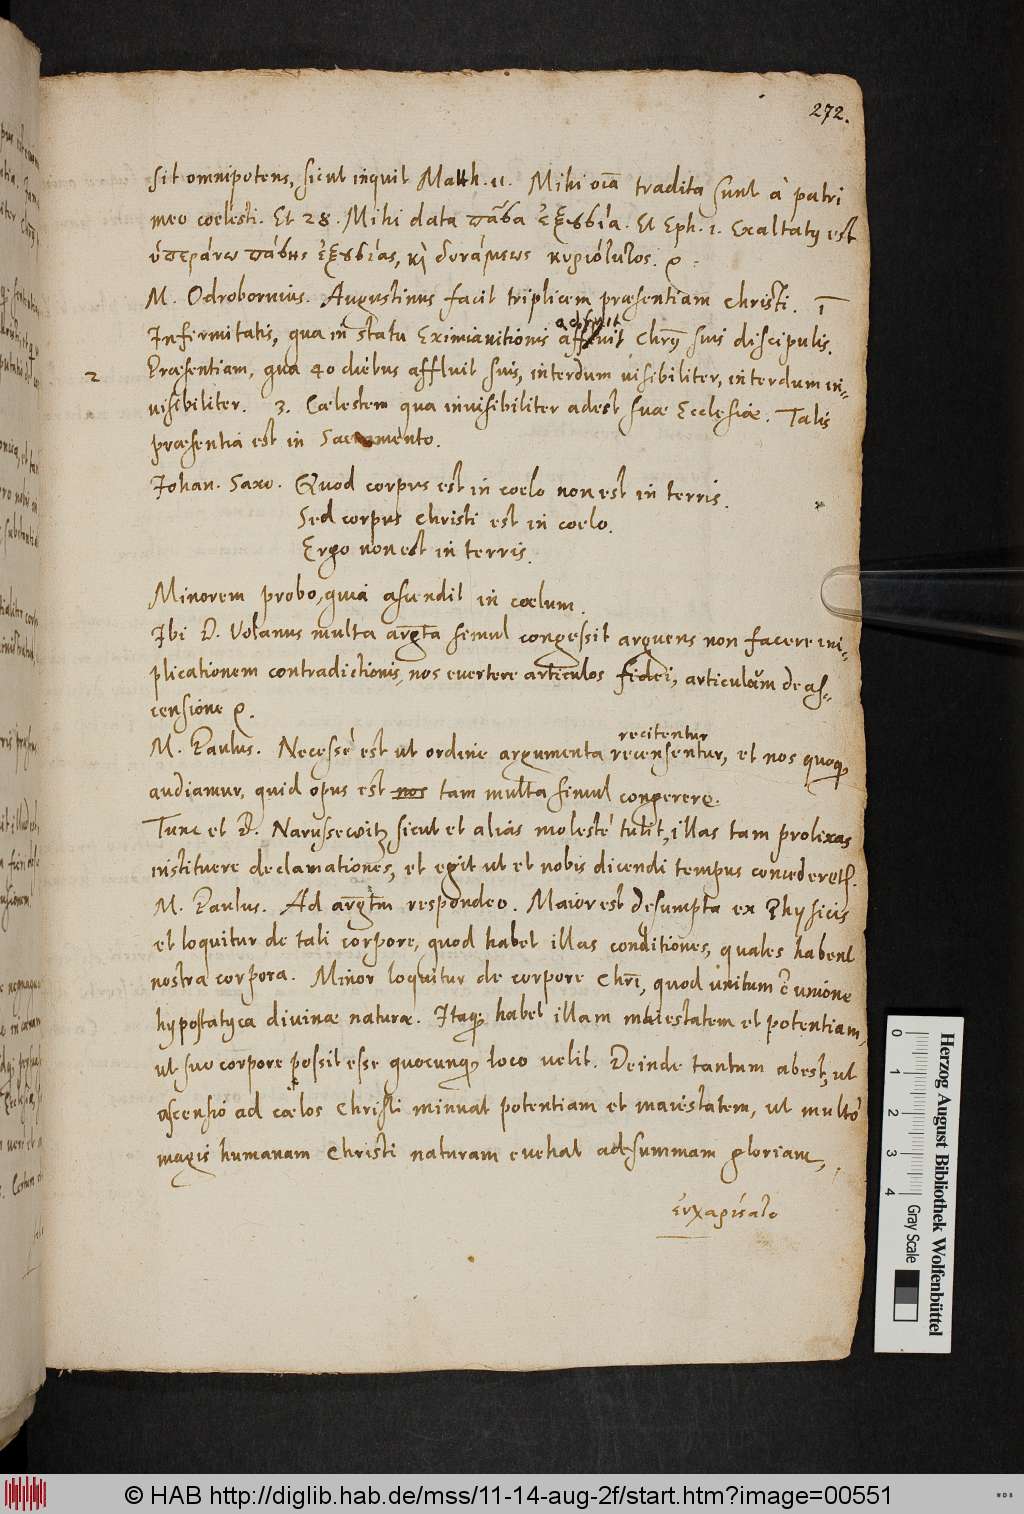 272.
sit omnipotens, sicut inquit Matth. 11. Mihi oĩa tradita sunt à patri
meo coelesti. Et 28. Mihi data πᾶσα ἐξουσία. Et Eph. 1. Exaltatus est
ὑπεράνω πάσης ἐξουσίας, κὶ δυνάμεως κυριότητος.
M. Odrobornius. Augustinus facit triplicem præsentiam Christi. 1
Infirmitatis, qua in statu
adfuit
affluit Chrũs suis discipulis.
2
Præsentiam, qua 40 diebus affluit suis, interdum visibiliter, interdum in-
visibiliter. 3. Cælestem qua invisibiliter adest suæ Ecclesiæ. Talis
præsentia est in Sacramento.
Johan. Saxo. Quod corpus est in coelo non est in terris.
Sed corpus Christi est in coelo.
Ergo non est in terris.
Minorem probo, quia ascendit in cælum.
Ibi D. Volanus multa argta simul congessit arguens non facere im-
plicationem contradictionis, nos evertere articulos fidei, articulum de as-
censione
M. Paulus. Necesse est ut ordine argumenta recensentur, et nos quoq
recitentur
audiamur, quid opus est nos tam multa simul congerere.
Tunc et D. Narussewitz sicut et alias molestè tulit, illas tam prolixas
instituere declamationes, et egit ut et nobis dicendi tempus concederetr.
M. Paulus. Ad argtm respondeo. Maior est desumpta ex Physicis
et loquitur de tali corpore, quod habet illas conditiones, quales habent
nostra corpora. Minor loquitur de corpore Chri, quod unitum ẽ unione
hypostatyca divinæ naturæ. Itaq; habet illam maiestatem et potentiam,
ut suo corpore possit esse quocunq loco velit. Deinde tantum abest, ut
ascensio ad cælos Christi minuat potentiam et maiestatem, ut multo
magis humanam Christi naturam evehat ad summam gloriam,
Herzog August Bibliothek Wolfenbüttel
0 1 2 3 4
Gray Scale
© HAB http://diglib.hab.de/mss/11-14-aug-2f/start.htm?image=00551